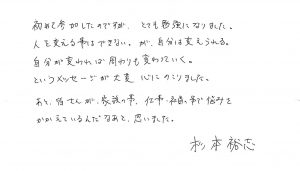 初めて参加したのですが、とても勉強になりました。
人を変える事はできない。が、自分は変えられる。
自分が変われば周りも変わっていく。
というメッセージが大変心にのこりました。
あと、皆さんが、家族の事、仕事・福島の事で悩みを
かかえているんだなあと、思いました。
杉本裕志